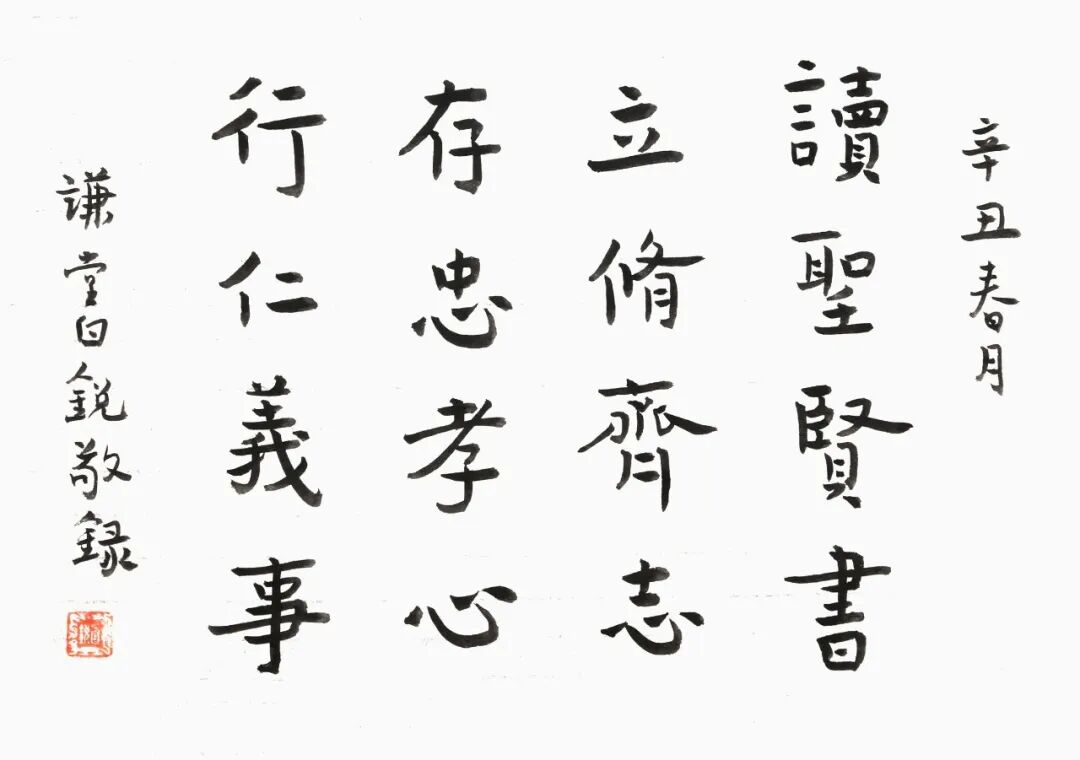 辛丑春月
讀聖賢書
立脩齊志
存忠孝心
行仁義事
謙堂白銳敬錄